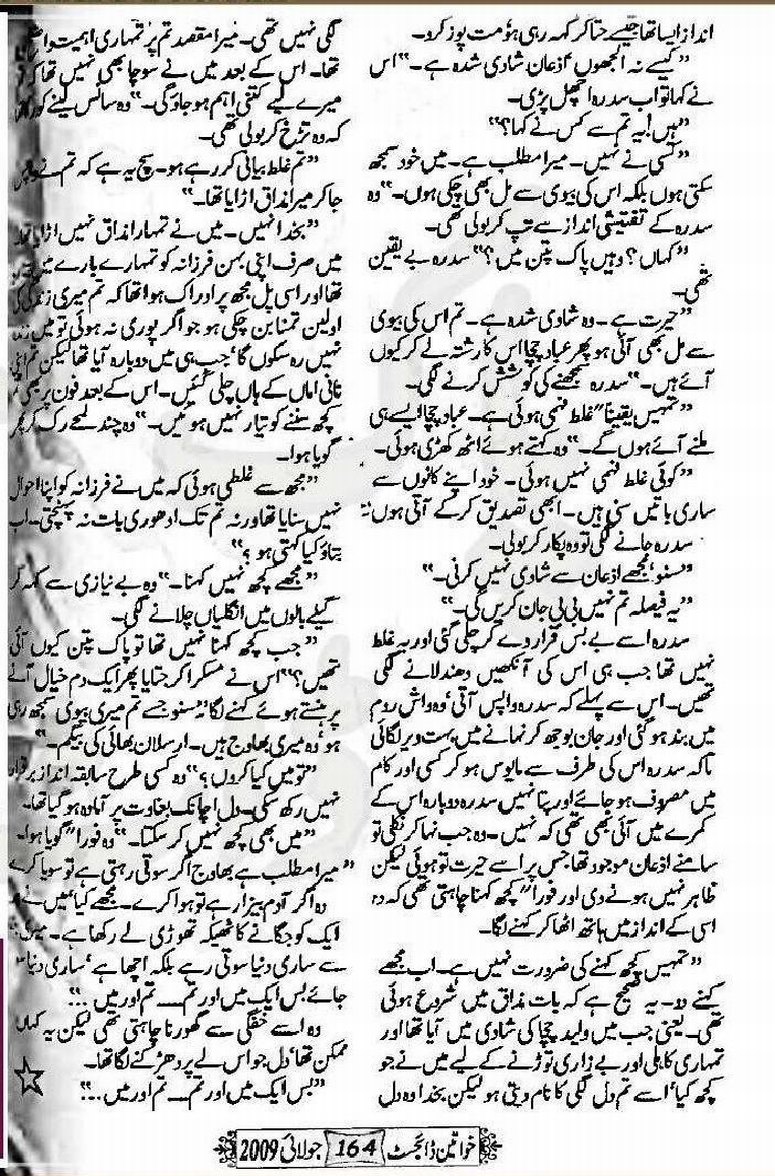 انداز ایسا تھا جیسے جتا کر کہہ رہی ہو مت پوز کرو۔
”کیسے نہ الجھوں‘ اذعان شادی شدہ ہے۔“ اس
نے کہا تو اب سدرہ اچھل پڑی۔
”ہیں! یہ تم سے کس نے کہا؟“
”کسی نے نہیں۔ میرا مطلب ہے۔ میں خود سمجھ
سکتی ہوں بلکہ اس کی بیوی سے مل بھی چکی ہوں۔“ وہ
سدرہ کے تفتیشی انداز سے تپ کر بولی تھی۔
”کہاں؟ وہیں پاک پتن میں؟“ سدرہ بے یقین
تھی۔
”حیرت ہے۔ وہ شادی شدہ ہے۔ تم اس کی بیوی
سے مل بھی آئی ہو پھر عباد چچا اس کا رشتہ لے کر کیوں
آئے ہیں۔“ سدرہ سمجھنے کی کوشش کرنے لگی۔
”تمہیں یقینا“ غلط فہمی ہوئی ہے۔ عباد چچا ایسے ہی
ملنے آئے ہوں گے۔“ وہ کہتے ہوئے اٹھ کھڑی ہوئی۔
”کوئی غلط فہمی نہیں ہوئی۔ خود اپنے کانوں سے
ساری باتیں سنی ہیں۔ ابھی تصدیق کر کے آتی ہوں۔“
سدرہ جانے لگی تو وہ پکار کر بولی۔
”سنو‘ مجھے اذعان سے شادی نہیں کرنی۔“
”یہ فیصلہ تم نہیں بی بی جان کریں گی۔“
سدرہ اسے بے بس قرار دے کر چلی گئی اور یہ غلط
نہیں تھا جب ہی اس کی آنکھیں دھندلانے لگی
تھیں۔ اس سے پہلے کہ سدرہ واپس آتی‘ وہ واش روم
میں بند ہو گئی اور جان بوجھ کر نہانے میں بہت دیر لگائی
تاکہ سدرہ اس کی طرف سے مایوس ہو کر کسی اور کام
میں مصروف ہو جائے اور پتا نہیں سدرہ دوبارہ اس کے
کمرے میں آئی بھی تھی کہ نہیں۔ وہ جب نہا کر نکلی تو
سامنے اذعان موجود تھا جس پر اسے حیرت تو ہوئی لیکن
ظاہر نہیں ہونے دی اور فورا“ کچھ کہنا چاہتی تھی کہ وہ
اسی کے انداز میں ہاتھ اٹھا کر کہنے لگا۔
”تمہیں کچھ کہنے کی ضرورت نہیں ہے۔ اب مجھے
کہنے دو۔ یہ صحیح ہے کہ بات مذاق میں شروع ہوئی
تھی۔ یعنی جب میں ولید چچا کی شادی میں آیا تھا اور
تمہاری کاہلی اور بے زاری توڑنے کے لیے میں نے جو
کچھ کیا‘ اسے تم دل لگی کا نام دیتی ہو لیکن بخدا وہ دل
لگی نہیں تھی۔ میرا مقصد تم پر تمہاری اہمیت
تھا۔ اس کے بعد میں نے سوچا بھی نہیں تھا کہ تم
میرے لیے کتنی اہم ہو جاؤ گی۔“ وہ سانس لینے کو رکا تھا
کہ وہ تڑخ کر بولی تھی۔
”تم غلط بیانی کر رہے ہو۔ سچ یہ ہے کہ تم نے واپس
جا کر میرا مذاق اڑایا تھا۔“
”بخدا نہیں۔ میں نے تمہارا مذاق نہیں اڑایا تھا
میں صرف اپنی بہن فرزانہ کو تمہارے بارے میں
تھا اور اسی پل مجھ پر ادراک ہوا تھا کہ تم میری زندگی کی
اولین تمنا بن چکی ہو جو اگر پوری نہ ہوئی تو میں زندہ
نہیں رہ سکوں گا‘ جب ہی میں دوبارہ آیا تھا لیکن تم اپنی
نانی اماں کے ہاں چلی گئیں۔ اس کے بعد فون پر بھی تم
کچھ سننے کو تیار نہیں ہوئیں۔“ وہ چند لمحے رک کر پھر
گویا ہوا۔
”مجھ سے غلطی ہوئی کہ میں نے فرزانہ کو اپنا احوال
نہیں سنایا تھا ورنہ تم تک ادھوری بات نہ پہنچتی۔ اب
بتاؤ کیا کہتی ہو؟“
”مجھے کچھ نہیں کہنا۔“ وہ بے نیازی سے کہہ کر
گیلے بالوں میں انگلیاں چلانے لگی۔
”جب کچھ کہنا نہیں تھا تو پاک پتن کیوں آئی
تھیں؟“ اس نے مسکرا کر جتایا پھر ایک دم خیال آنے
پر ہنستے ہوئے کہنے لگا۔ ”سنو جسے تم میری بیوی سمجھ رہی
ہو‘ وہ میری بھاوج ہیں۔ ارسلان بھائی کی بیگم۔“
”تو میں کیا کروں؟“ وہ کسی طرح سابقہ انداز برقرار
نہیں رکھ سکی۔ دل اچانک بغاوت پر آمادہ ہو گیا تھا۔
”میں بھی کچھ نہیں کر سکتا۔“ وہ فورا“ گویا ہوا۔
”میرا مطلب ہے بھاوج اگر سوتی رہتی ہے تو سویا کرے
وہ اگر آدم بیزار ہے تو ہوا کرے۔ مجھے کیا‘ میں نے ہر
ایک کو جگانے کا ٹھیکہ تھوڑی لے رکھا ہے۔ میری
سے ساری دنیا سوتی رہے بلکہ اچھا ہے‘ ساری دنیا سو
جائے بس ایک میں اور تم۔۔۔ تم اور میں۔۔۔“
وہ اسے خفگی سے گھورنا چاہتی تھی لیکن یہ کہاں
ممکن تھا‘ دل جو اس لے پر دھڑکنے لگا تھا۔
”بس ایک میں اور تم۔۔۔ تم اور میں۔۔۔“
خواتین ڈائجسٹ 164 جولائی 2009